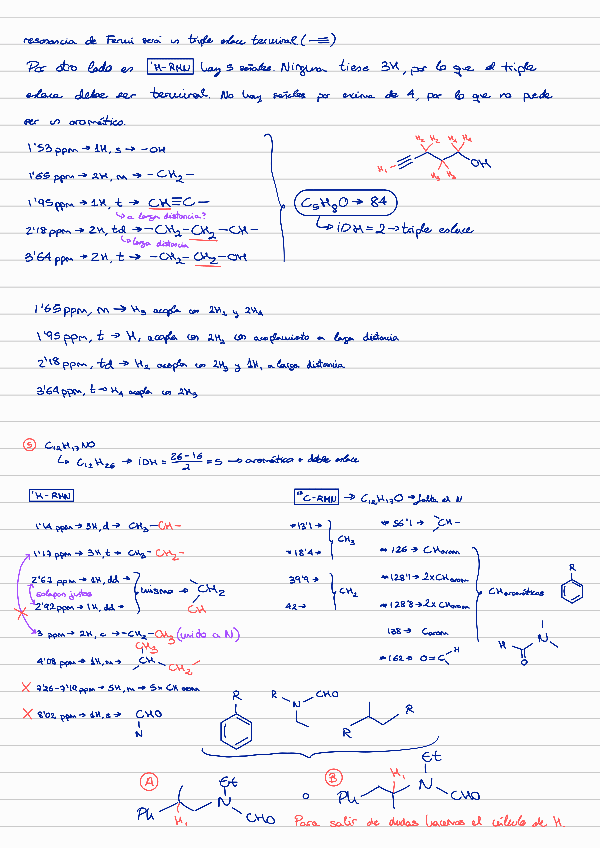 resonancia de Fermi será un triple enlace terminal (−≡)
Por otro lado en ¹H-RMN hay 5 señales. Ninguna tiene 3H, por lo que el triple
enlace debe ser terminal. No hay señales por encima de 4, por lo que no puede
ser un aromático.
1'53 ppm → 1H, s → -OH
1'65 ppm → 2H, m → -CH₂-
1'95 ppm → 1H, t → CH≡C-
↳ a larga distancia?
2'18 ppm → 2H, td → -CH₂-CH₂-CH-
↳ larga distancia
3'64 ppm → 2H, t → -CH₂-CH₂-OH
C₅H₈O → 84
↳ iDH = 2 → triple enlace
H₁ H₂ H₂ H₃ H₃ H₄ H₄ OH
1'65 ppm, m → H₃ acopla con 2H₂ y 2H₄
1'95 ppm, t → H₁ acopla con 2H₂ con acoplamiento a larga distancia
2'18 ppm, td → H₂ acopla con 2H₃ y 1H, a larga distancia
3'64 ppm, t → H₄ acopla con 2H₃
⑤ C₁₂H₁₇NO
↳ C₁₂H₂₆ → iDH = 26-16/2 = 5 → aromático + doble enlace
¹H-RMN
1'14 ppm → 3H, d → CH₃-CH-
1'17 ppm → 3H, t → CH₃-CH₂-
2'67 ppm → 1H, dd →
solapan justos
2'92 ppm → 1H, dd →
mismo → CH₂
CH
3 ppm → 2H, c → -CH₂-CH₃ (unido a N)
4'08 ppm → 1H, m → CH₃ CH CH₂
X 7'26-7'19 ppm → 5H, m → 5x CH arom
X 8'02 ppm → 1H, s → CHO
N
¹³C-RMN → C₁₂H₁₇O → falta el N
*13'1 →
*18'4 →
CH₃
39'9 →
42 →
CH₂
*56'1 → CH-
*126 → CHarom
*128'1 → 2xCHarom
*128'8 → 2xCHarom
138 → Carom
*162 → O=C H
CHaromáticos
R
H N O
R
R N CHO
R R
A
Ph Et N CHO H₁
o
B
Ph H₁ Et N CHO
Para salir de dudas hacemos el cálculo de H.